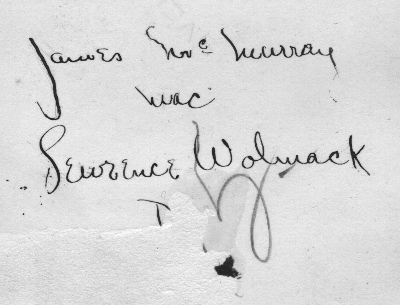 James McMurray
Mac
Lewrence Wolmack
T